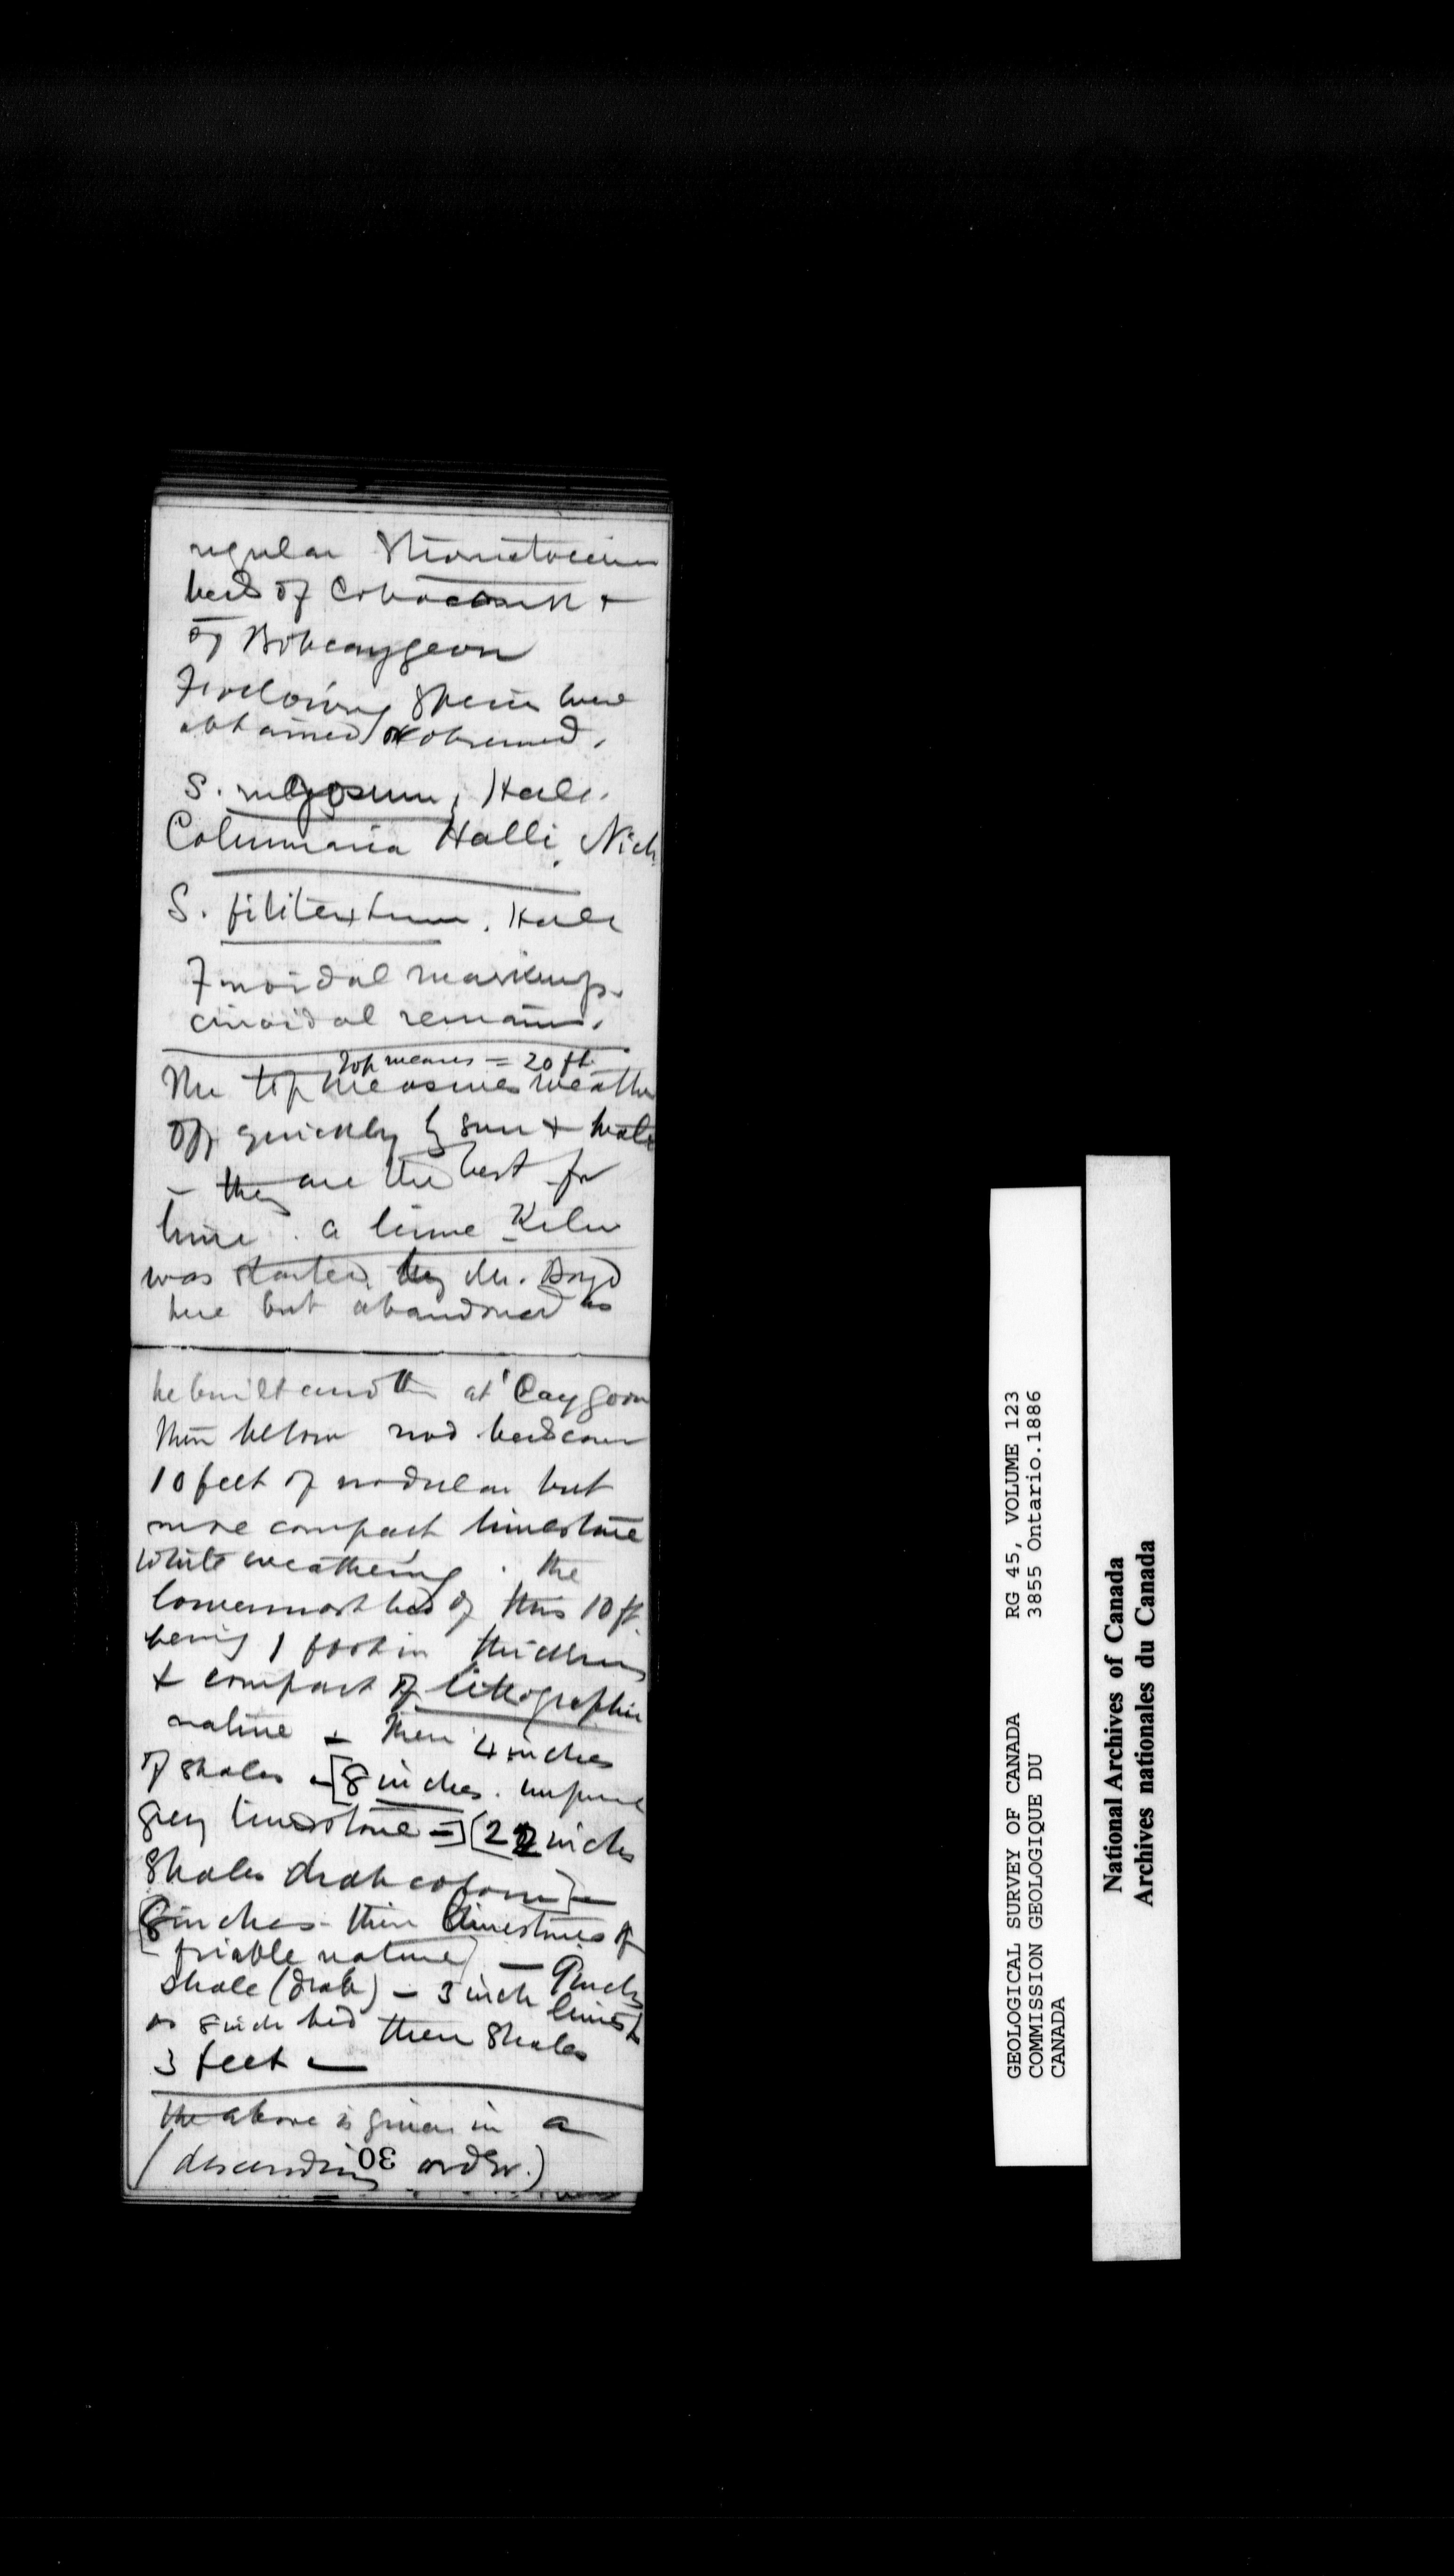 regular Stromatocerium
beds of Coboconk +
of Bobcaygeon
Following Species were
obtained or observed.
S. rugosum, Hall.
Columnaria Halli, Nich
S. filitextum, Hall
Fucoidal markings.
crinoidal remains.
Top measures = 20 ft.
The top measures weather
off quickly by sun + heat
– they are the best for
lime. a lime Kiln
was started by Mr. Boyd
here but abandoned as
he built another at 'Caygeon
Then below beds come
10 feet of nodular but
more compact limestone
white weathering. the
lowermost bed of this 10 ft.
being 1 foot in thickness
+ compact of lithographic
nature – Then 4 inches
of shales – [8 inches. impure
grey limestone –] [22 inches
Shales drab colour] –
[8 inches – thin limestones of
friable nature] – 9 inches
shale (drab) – 3 inch limest
bed then Shales
3 feet –
the above is given in a
(descending order.)
30
GEOLOGICAL SURVEY OF CANADA RG 45, VOLUME 123
COMMISSION GEOLOGIQUE DU 3855 Ontario.1886
CANADA
National Archives of Canada
Archives nationales du Canada